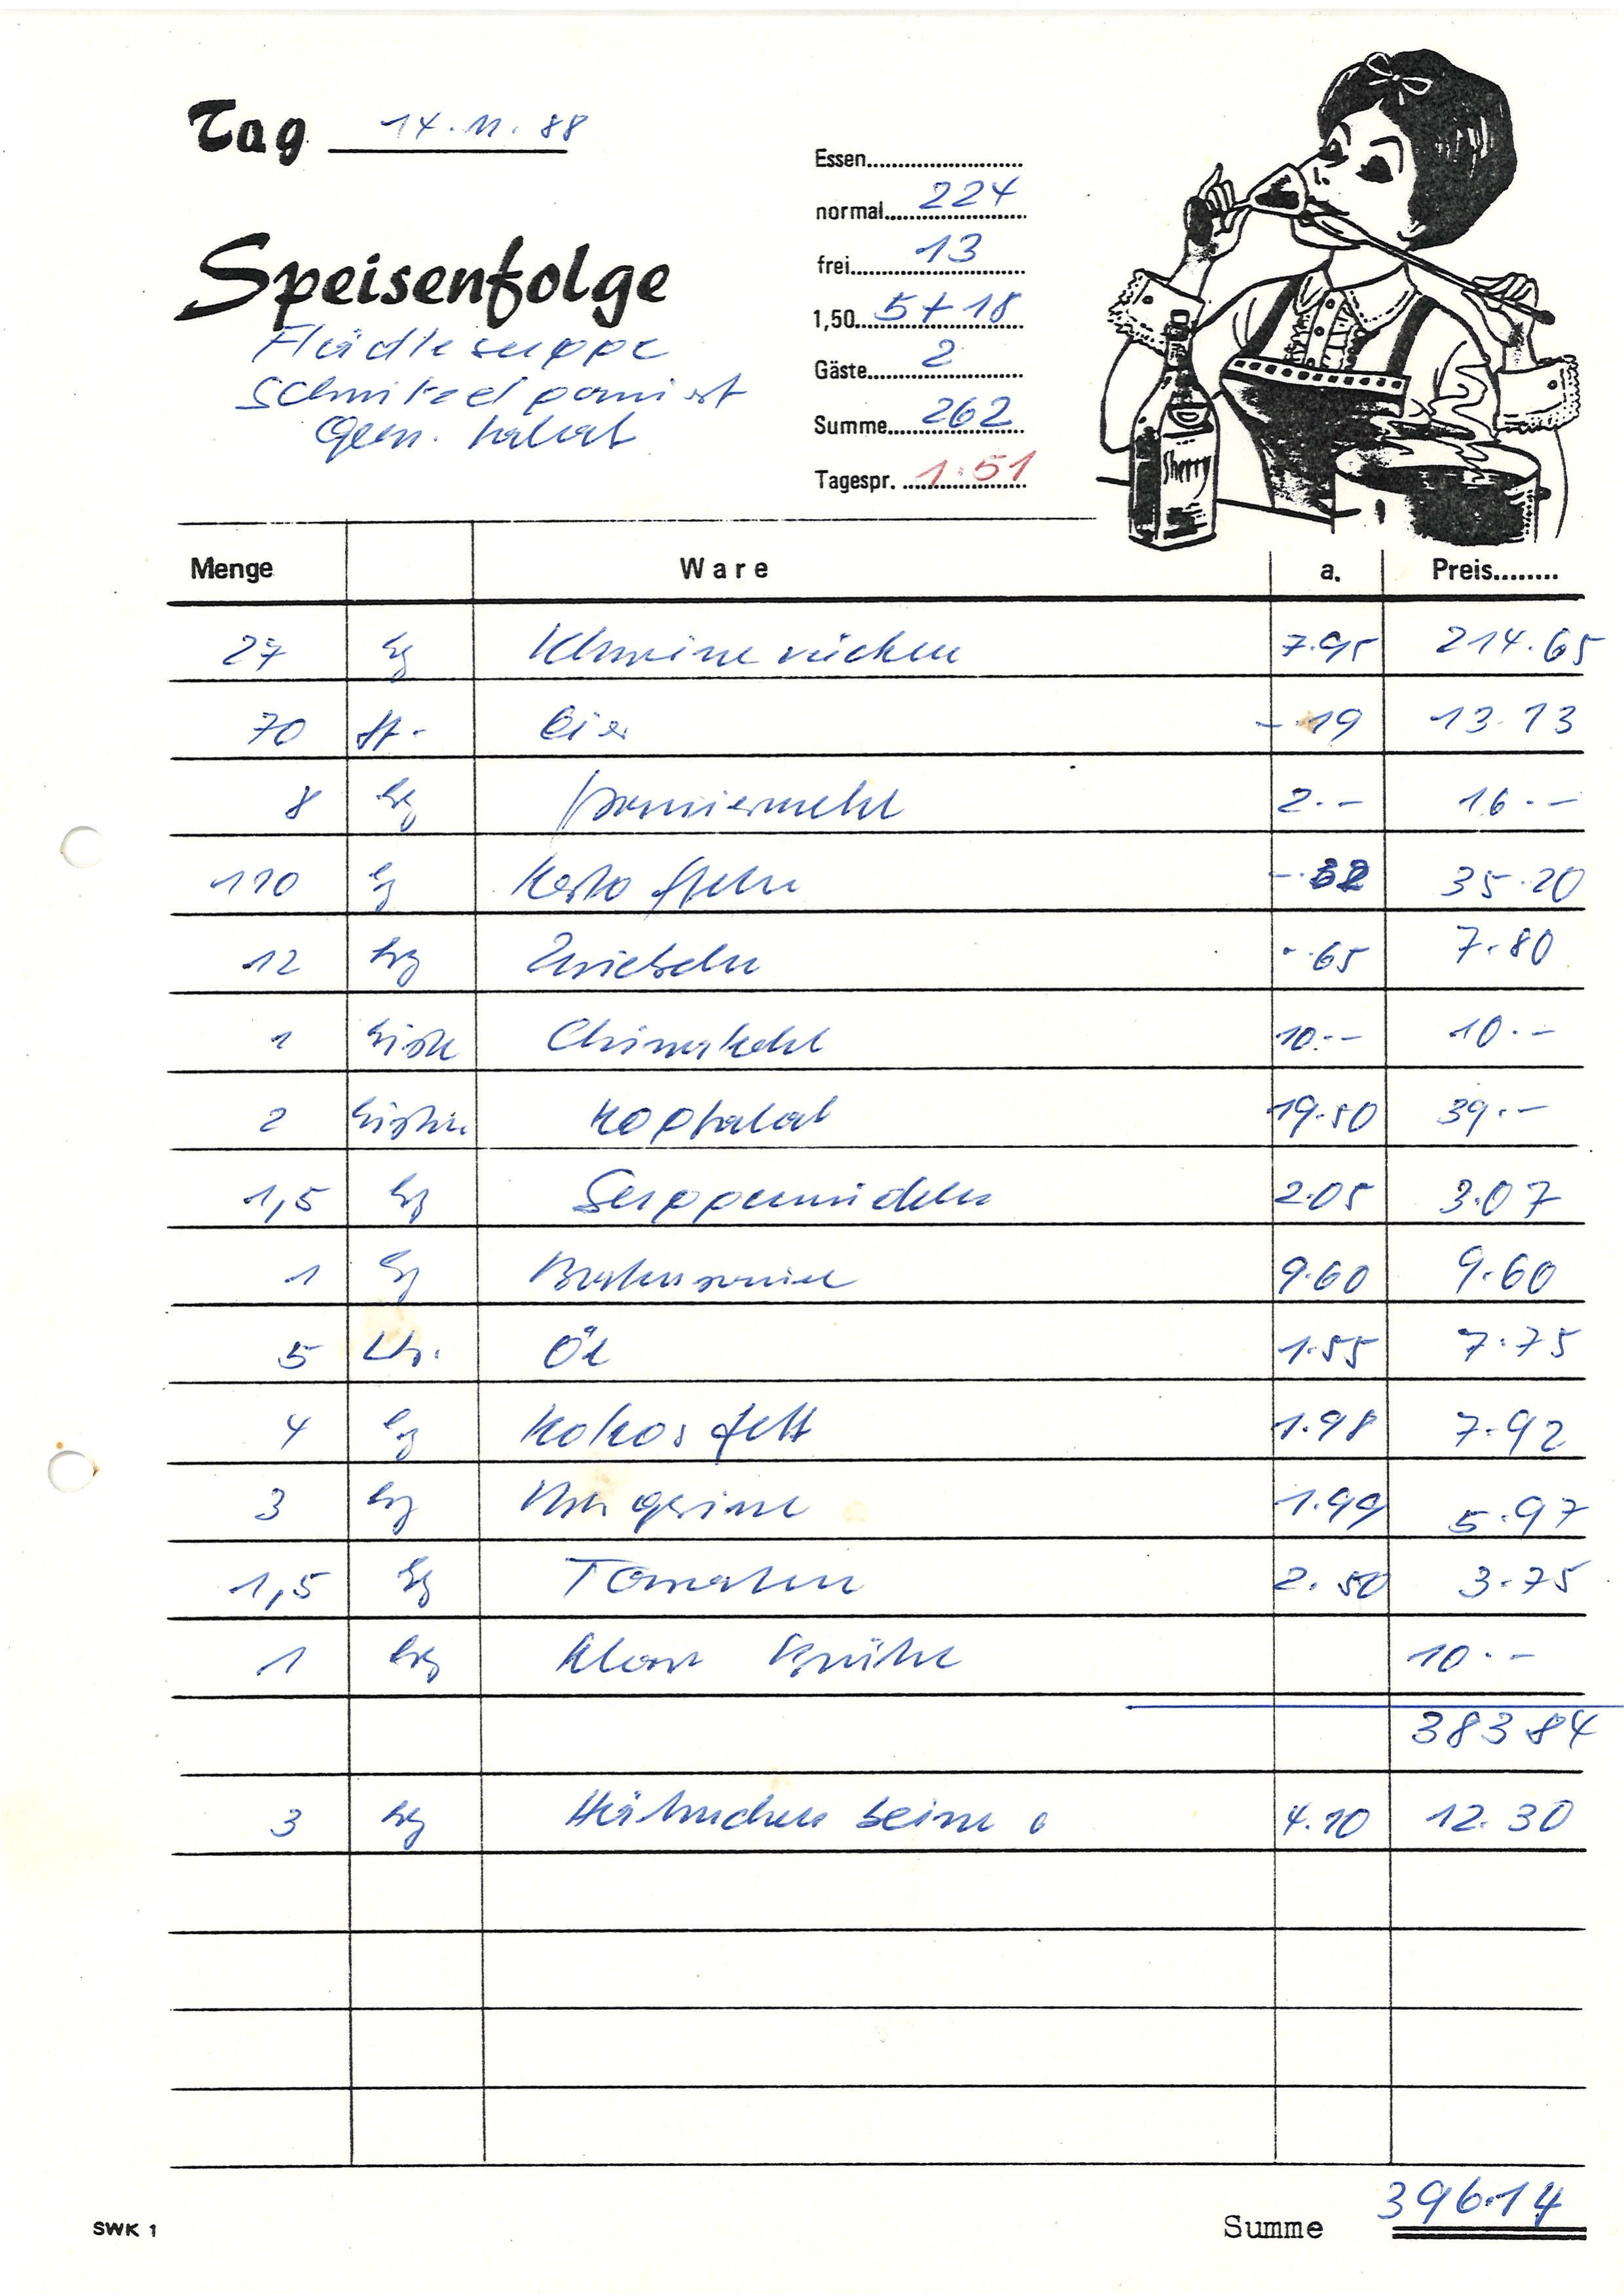 Tag 14.11.88
Speisenfolge
Flädlesuppe
Schnitzel paniert
Gem. Salat
Essen
normal 224
frei 13
1,50 5+18
Gäste 2
Summe 262
Tagespr. 1.51
Sherry
Menge Ware a. Preis
27 kg Schweinerücken 7.95 214.65
70 St. Eier -.19 13.13
8 kg Paniermehl 2.- 16.-
110 kg Kartoffeln -.32 35.20
12 kg Zwiebeln -.65 7.80
1 Kiste Chinakohl 10.- 10.-
2 Kisten Kopfsalat 19.50 39.-
1,5 kg Suppennudeln 2.05 3.07
1 kg 9.60 9.60
5 Ltr. Öl 1.55 7.75
4 kg Kokosfett 1.98 7.92
3 kg Margarine 1.99 5.97
1,5 kg Tomaten 2.50 3.75
1 kg Klare Brühe 10.-
383.84
3 kg Hähnchenbeine 4.10 12.30
Summe 396.14
SWK 1